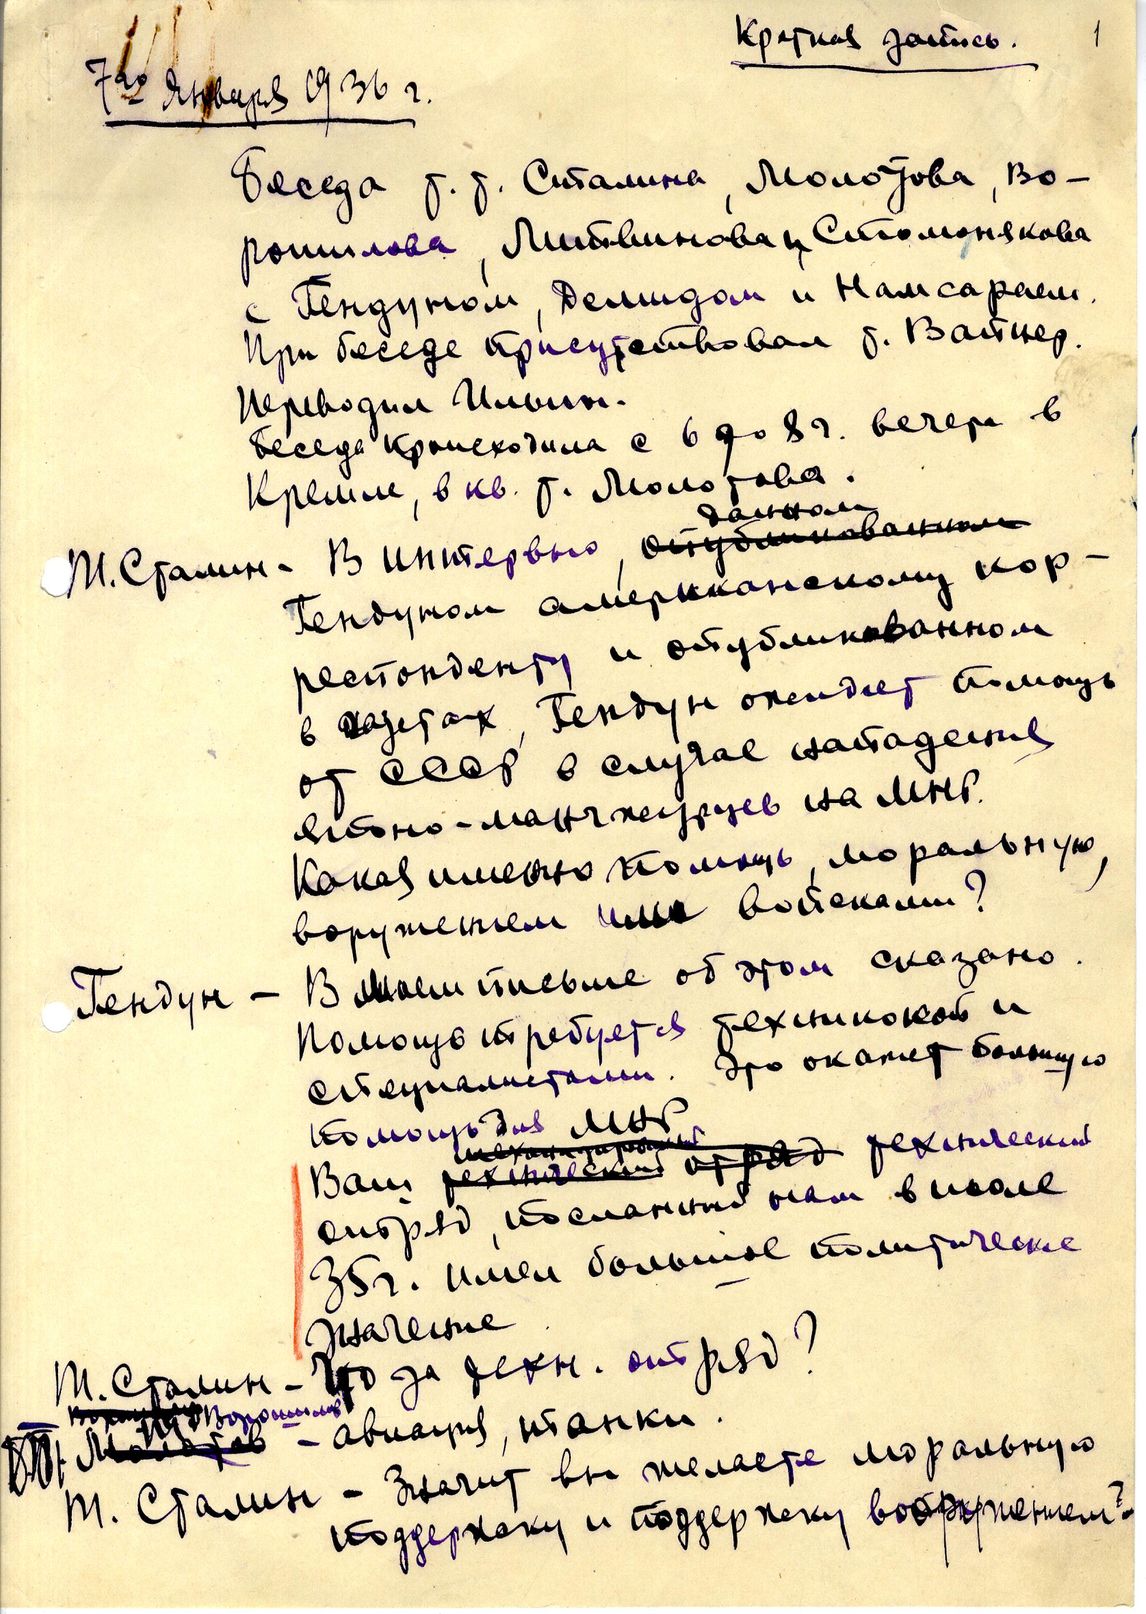 Краткая запись.
1
7го Января 1936 г.
Беседа т. т. Сталина, Молотова, Во-
рошилова, Литвинова и Стомонякова
с Гендуном, Демидом и Намсараем.
При беседе присутствовал т. Вайнер.
Переводил Ильин.
Беседа происходила с 6 до 8 ч. вечера в
Кремле, в кв. т. Молотова.
данном
Т. Сталин - В интервью, опубликованном
Гендуном американскому кор-
респонденту и опубликованном
в газетах, Гендун ожидает помощь
от СССР в случае нападения
японо-манчжурцев на МНР.
Какая именно помощь, моральную,
воружением или войсками?
Гендун - В моем письме об этом сказано.
Помощь требуется техникой и
специалистами. Это окажет большую
помощь для МНР
механизированный
Ваш технический отряд технический
отряд, посланный нам в июле
35 г. имел большое политическое
значение.
Т. Сталин - Что за техн. отряд?
Ворошилов
Молотов - авиация, танки.
Т. Сталин - Значит вы желаете моральную
поддержку и поддержку вооружением?